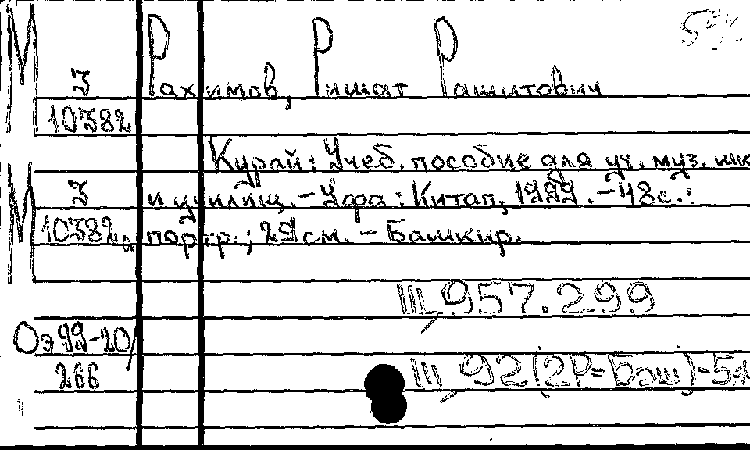 М
З
10382
Рахимов, Ришат Рашитович
Курай: Учеб. пособие для уч. муз. шк
М
З
10382
и училищ. – Уфа: Китап, 1999. – 48с.:
портр.; 29см. – Башкир.
III, 957.299
Оэ 99-10/
266
III, 92(2Р=Баш)-5я